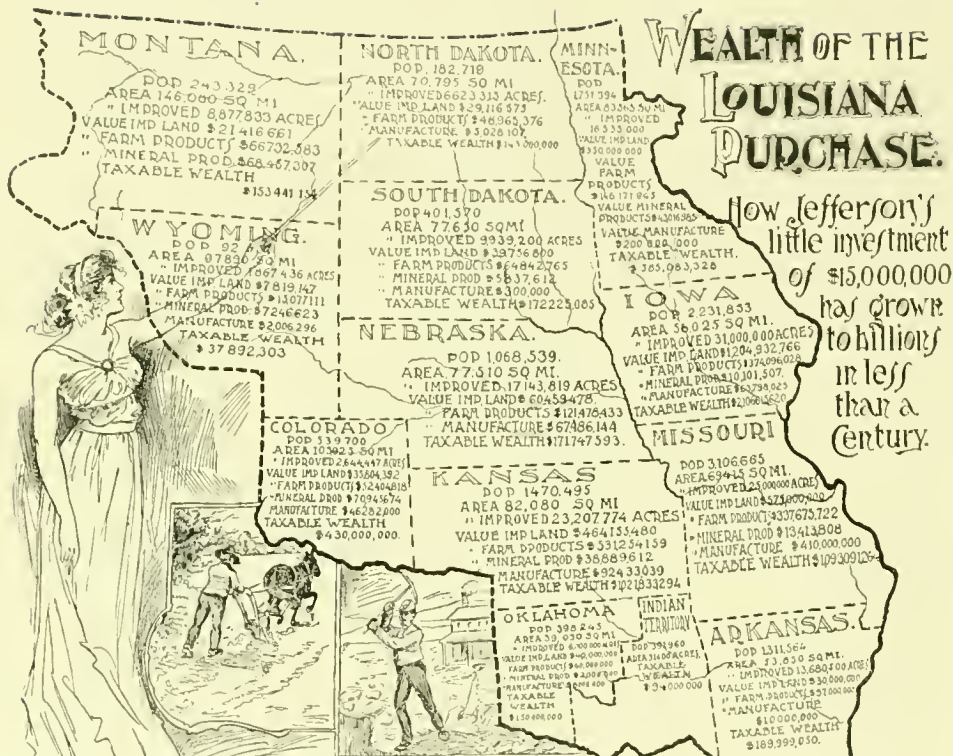 WEALTH OF THE
LOUISIANA
PURCHASE.
How Jefferson's
little investment
of $15,000,000
has grown
to billions
in less
than a
Century.
MONTANA.
POP 243,329
AREA 146,080 SQ MI
" IMPROVED 8,877,833 ACRES
VALUE IMP LAND $21416661
" FARM PRODUCTS $66732,583
" MINERAL PROD. $68,457,307
TAXABLE WEALTH
$153441154
NORTH DAKOTA.
POP. 182,719
AREA 70,795 SQ MI
" IMPROVED 6623313 ACRES.
VALUE IMP. LAND $29,116,573
" FARM PRODUCTS $48,965,376
" MANUFACTURE $3,028,107
TAXABLE WEALTH
MINN-
ESOTA.
POP
1751394
AREA 83365 SQ MI
" IMPROVED
VALUE IMP LAND
$350,000,000
VALUE
FARM
PRODUCTS
VALUE MINERAL
PRODUCTS
VALUE MANUFACTURE
TAXABLE WEALTH.
$585,083,328
WYOMING.
POP
AREA SQ MI
" IMPROVED 1867436 ACRES
VALUE IMP LAND $7819,147
" FARM PRODUCTS $13077111
" MINERAL PROD $7246623
MANUFACTURE $2,006,296
TAXABLE WEALTH
$37892,303
SOUTH DAKOTA.
POP 401,570
AREA 77,650 SQ MI
" IMPROVED 9,939,200 ACRES
VALUE IMP. LAND $39756800
" FARM PRODUCTS $64842,765
" MINERAL PROD $5837,612
" MANUFACTURE $300,000
TAXABLE WEALTH $172225,085
IOWA
POP 2,231,853
AREA 56,025 SQ MI.
" IMPROVED 31,000,000 ACRES
VALUE IMP LAND $1,204,932,766
" FARM PRODUCTS $374096028
" MINERAL PROD $10,101,507.
" MANUFACTURE
TAXABLE WEALTH
NEBRASKA.
POP 1,068,539.
AREA 77,510 SQ MI.
" IMPROVED, 17143,819 ACRES
VALUE IMP LAND $60459478.
" FARM PRODUCTS $121478,433
" MANUFACTURE $67486,144
TAXABLE WEALTH $171747593.
COLORADO
POP 539700
AREA 103925 SQ MI
" IMPROVED 2,644,447 ACRES
VALUE IMP LAND $35804,392
" FARM PRODUCTS $52404818
" MINERAL PROD $70945674
MANUFACTURE $46282000
TAXABLE WEALTH
$430,000,000.
KANSAS
POP 1470,495
AREA 82,080 SQ MI
" IMPROVED 23,207,774 ACRES
VALUE IMP LAND $464155,480
" FARM PRODUCTS $531254159
" MINERAL PROD $38,889,612
MANUFACTURE $92433039
TAXABLE WEALTH $1021833294
MISSOURI
POP 3,106,665
AREA 69415 SQ MI.
" IMPROVED 25,000,000 ACRES
VALUE IMP LAND $575,000,000
" FARM PRODUCTS $337,675,722
" MINERAL PROD $13413,808
" MANUFACTURE $410,000,000
TAXABLE WEALTH
OKLAHOMA
POP 398,245
AREA 39,030 SQ MI
" IMPROVED ACRES
VALUE IMP. LAND $40,000,000
FARM PRODUCTS $60,000,000
" MINERAL PROD
" MANUFACTURE
TAXABLE
WEALTH
$150,000,000
INDIAN
TERRITORY
POP
AREA ACRES.
TAXABLE
WEALTH
$94000000
ARKANSAS.
POP 1,311,564
AREA 53,850 SQ MI.
" IMPROVED 13,680,000 ACRES
VALUE IMP LAND $30000,000
" FARM PRODUCTS
" MANUFACTURE
$10000,000
TAXABLE WEALTH
$189,999,050.